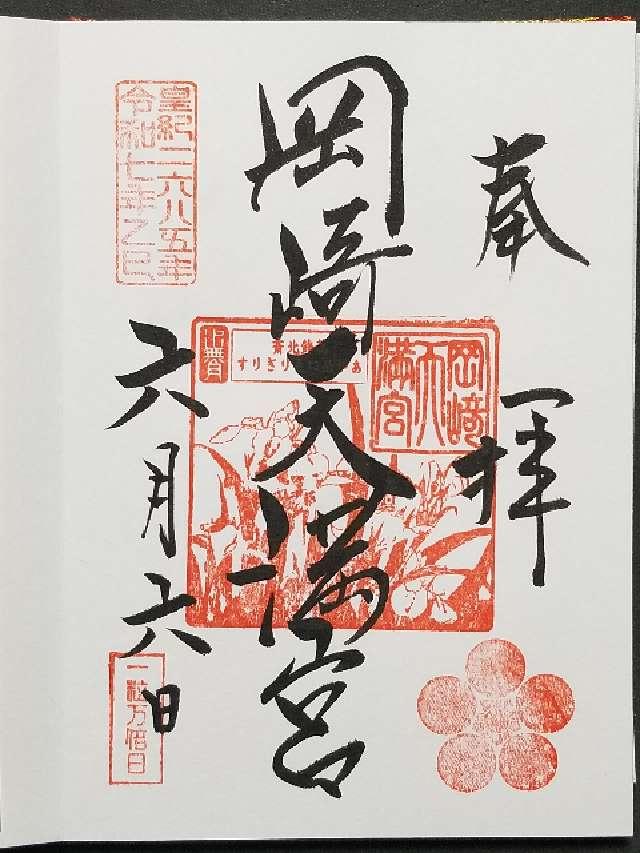 奉拝
岡﨑天満宮
六月六日
皇紀二六八五年
令和七年乙巳
岡﨑
天
満宮
一粒万倍日